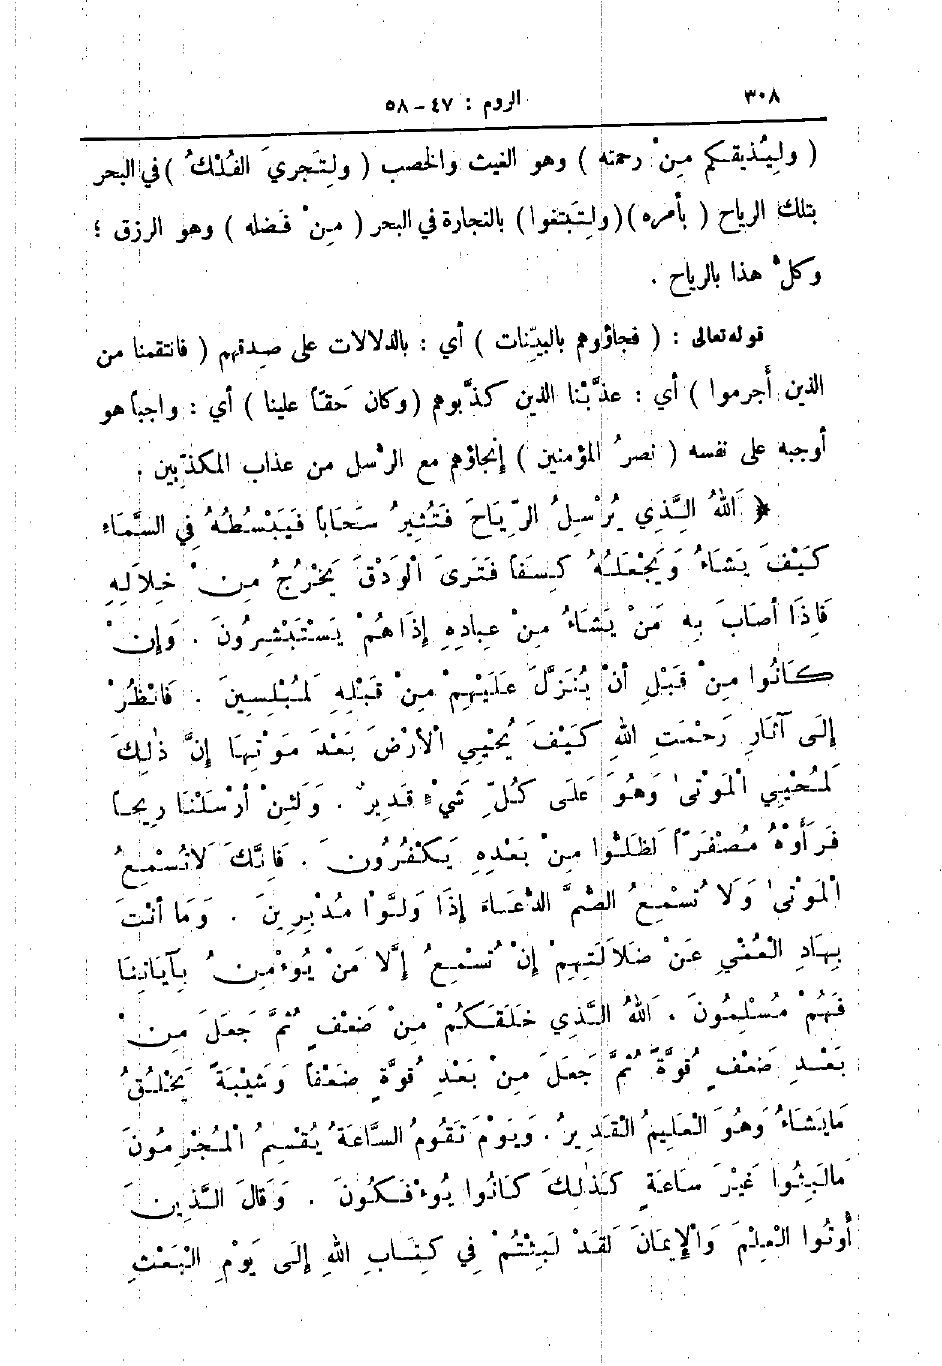 ٣٠٨
الروم : ٤٧ – ٥٨
( ولِيُذيقكم مِنْ رحمته ) وهو الغيث والخصب ( ولِتَجريَ الفُلْكُ ) في البحر
بتلك الرياح ( بأمره ) ( ولِتَبتغوا ) بالتجارة في البحر ( مِنْ فَضله ) وهو الرزق ؛
وكلُّ هذا بالرياح .
قوله تعالى : ( فجاؤوهم بالبيِّنات ) أي : بالدلالات على صِدقهم ( فانتقمنا من
الذين أَجرموا ) أي : عذَّبْنا الذين كذَّبوهم ( وكان حَقّاً علينا ) أي : واجباً هو
أوجبه على نفسه ( نصرُ المؤمنين ) إنجاؤهم مع الرُّسل من عذاب المكذِّبين .
﴿ اَللهُ الَّذِي يُرْسِلُ الرِّيَاحَ فَتُثِيرُ سَحَاباً فَيَبْسُطُهُ فِي السَّمَاءِ
كَيْفَ يَشَاءُ وَيَجْعَلُهُ كِسَفاً فَتَرَى الْوَدْقَ يَخْرُجُ مِنْ خِلاَلِهِ
فَإِذَا أصَابَ بِهِ مَنْ يَشَاءُ مِنْ عِبادِهِ إِذَا هُمْ يَسْتَبْشِرُونَ . وَإِنْ
كَانُوا مِنْ قَبْلِ أنْ يُنَزَّلَ عَلَيْهِمْ مِنْ قَبْلِهِ لَمُبْلِسِينَ . فَانْظُرْ
إِلَى آثَارِ رَحْمَتِ اللهِ كَيْفَ يُحْيِي الْأرْضَ بَعْدَ مَوْتِهَا إِنَّ ذٰلِكَ
لَمُحْيِي الْمَوْتىٰ وَهُوَ عَلَى كُلِّ شَيْءٍ قَدِيرٌ . وَلَئِنْ أرْسَلْنَا رِيحاً
فَرَأَوْهُ مُصْفَرّاً لَظَلُّوا مِنْ بَعْدِهِ يَكْفُرُونَ . فَإِنَّكَ لَا تُسْمِعُ
الْمَوْتىٰ وَلَا تُسْمِعُ الصُّمَّ الدُّعَاءَ إِذَا وَلَّوْا مُدْبِرِينَ . وَمَا أنْتَ
بِهَادِ الْعُمْيِ عَنْ ضَلَالَتِهِمْ إِنْ تُسْمِعُ إِلَّا مَنْ يُؤْمِنُ بِآيَاتِنَا
فَهُمْ مُسْلِمُونَ . اَللهُ الَّذِي خَلَقَكُمْ مِنْ ضَعْفٍ ثُمَّ جَعَلَ مِنْ
بَعْدِ ضَعْفٍ قُوَّةً ثُمَّ جَعَلَ مِنْ بَعْدِ قُوَّةٍ ضَعْفاً وَشَيْبَةً يَخْلُقُ
مَا يَشَاءُ وَهُوَ الْعَلِيمُ الْقَدِيرُ . وَيَوْمَ تَقُومُ السَّاعَةُ يُقْسِمُ الْمُجْرِمُونَ
مَا لَبِثُوا غَيْرَ سَاعَةٍ كَذٰلِكَ كَانُوا يُؤْفَكُونَ . وَقَالَ الَّذِينَ
أُوتُوا الْعِلْمَ وَالْإِيمَانَ لَقَدْ لَبِثْتُمْ فِي كِتَابِ اللهِ إِلَى يَوْمِ الْبَعْثِ